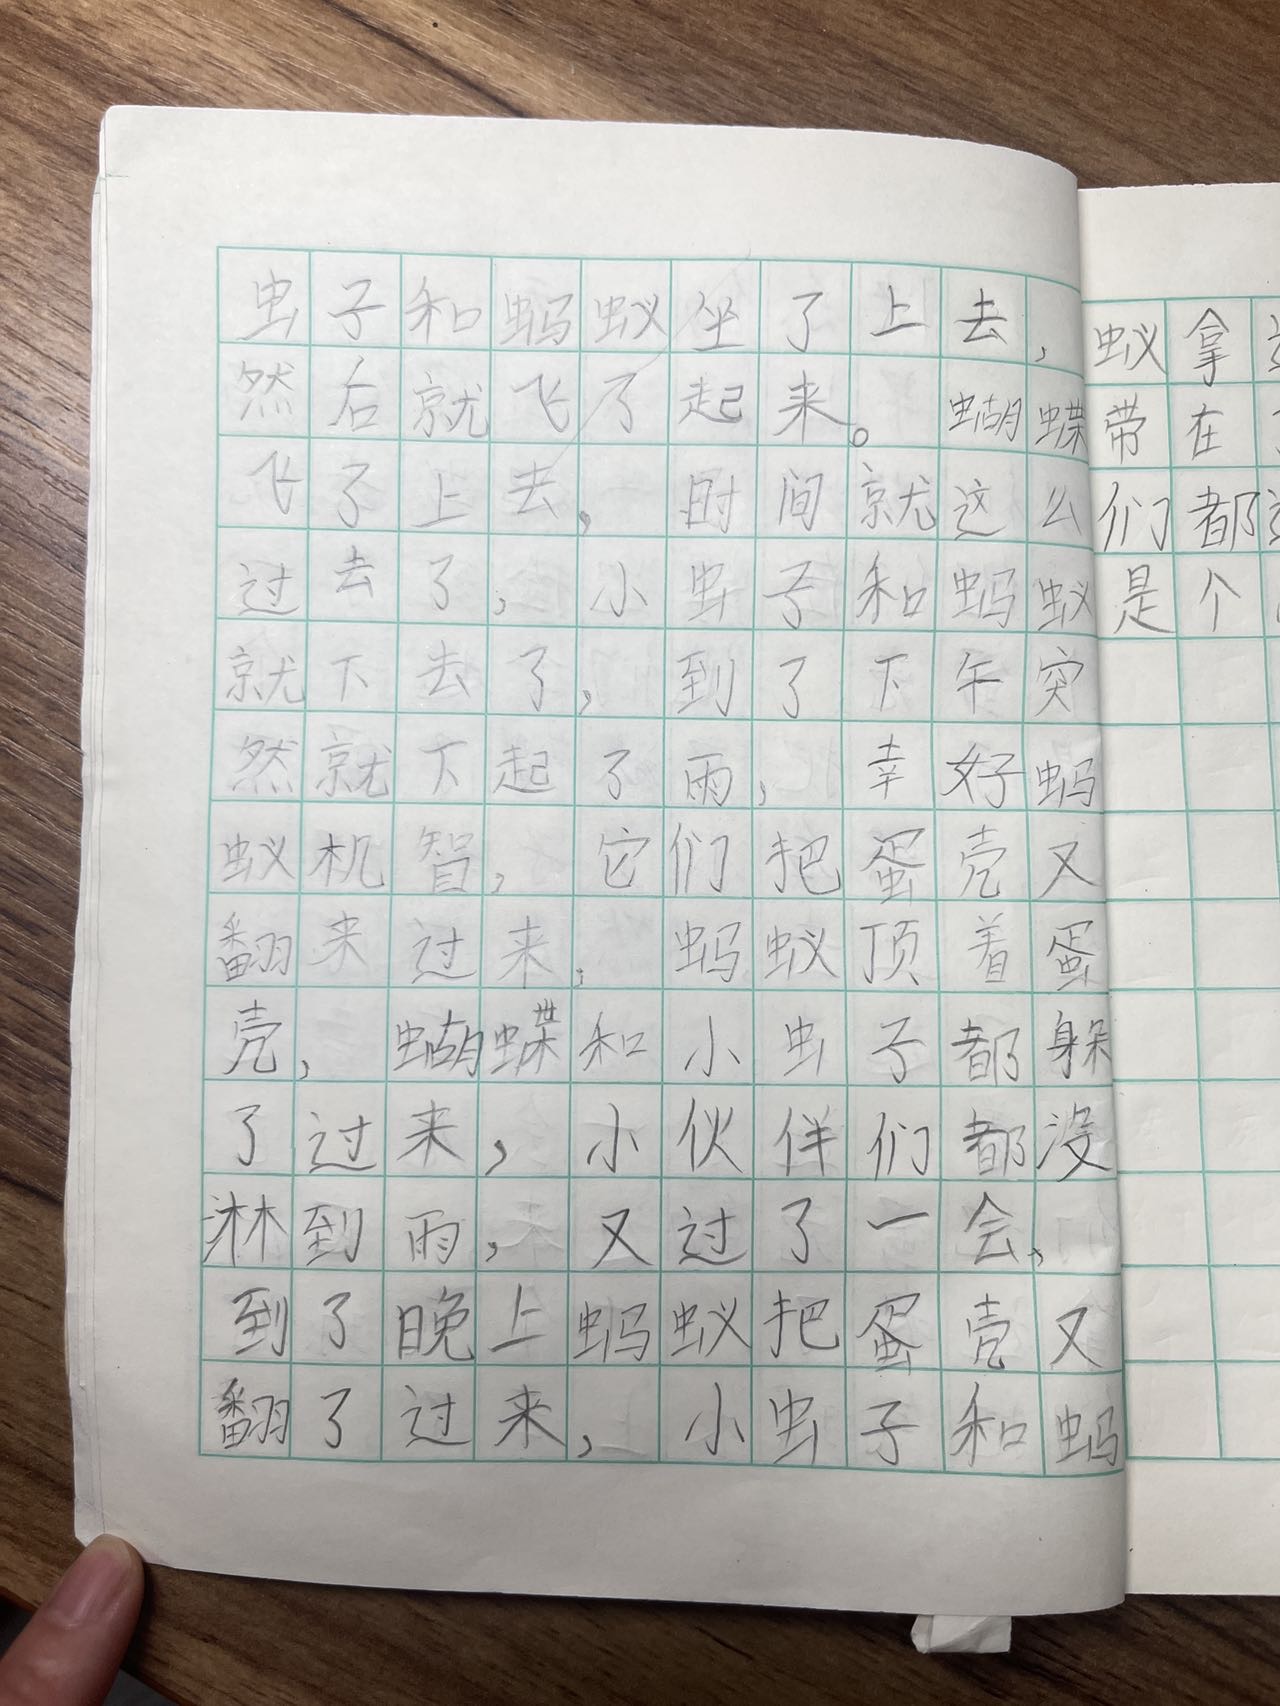 虫子和蚂蚁坐了上去,
然后就飞了起来。蝴蝶
飞了上去,时间就这么
过去了,小虫子和蚂蚁
就下去了,到了下午突
然就下起了雨,幸好蚂
蚁机智,它们把蛋壳又
翻来过来,蚂蚁顶着蛋
壳,蝴蝶和小虫子都躲
了过来,小伙伴们都没
淋到雨,又过了一会,
到了晚上蚂蚁把蛋壳又
翻了过来,小虫子和蚂
蚁拿
带在
们都
是个